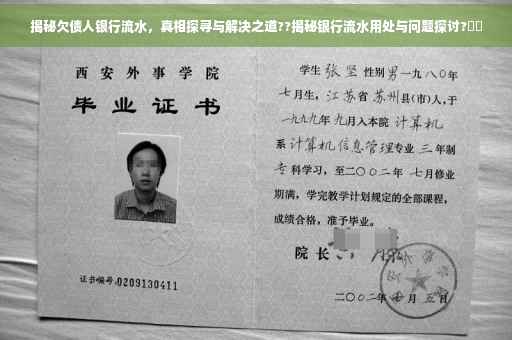 揭秘欠债人银行流水，真相探寻与解决之道??揭秘银行流水用处与问题探讨?
西安外事学院
毕业证书
证书编号:0209130411
学生 张坚 性别 男 一九八〇年
七月生，江苏省 苏州县(市)人，于
一九九九年 九月入本院 计算机
系 计算机信息管理专业 三年制
专科学习，至二〇〇二年 七月修业
期满，学完教学计划规定的全部课程，
成绩合格，准予毕业。
院长
二〇〇二年 月 五日